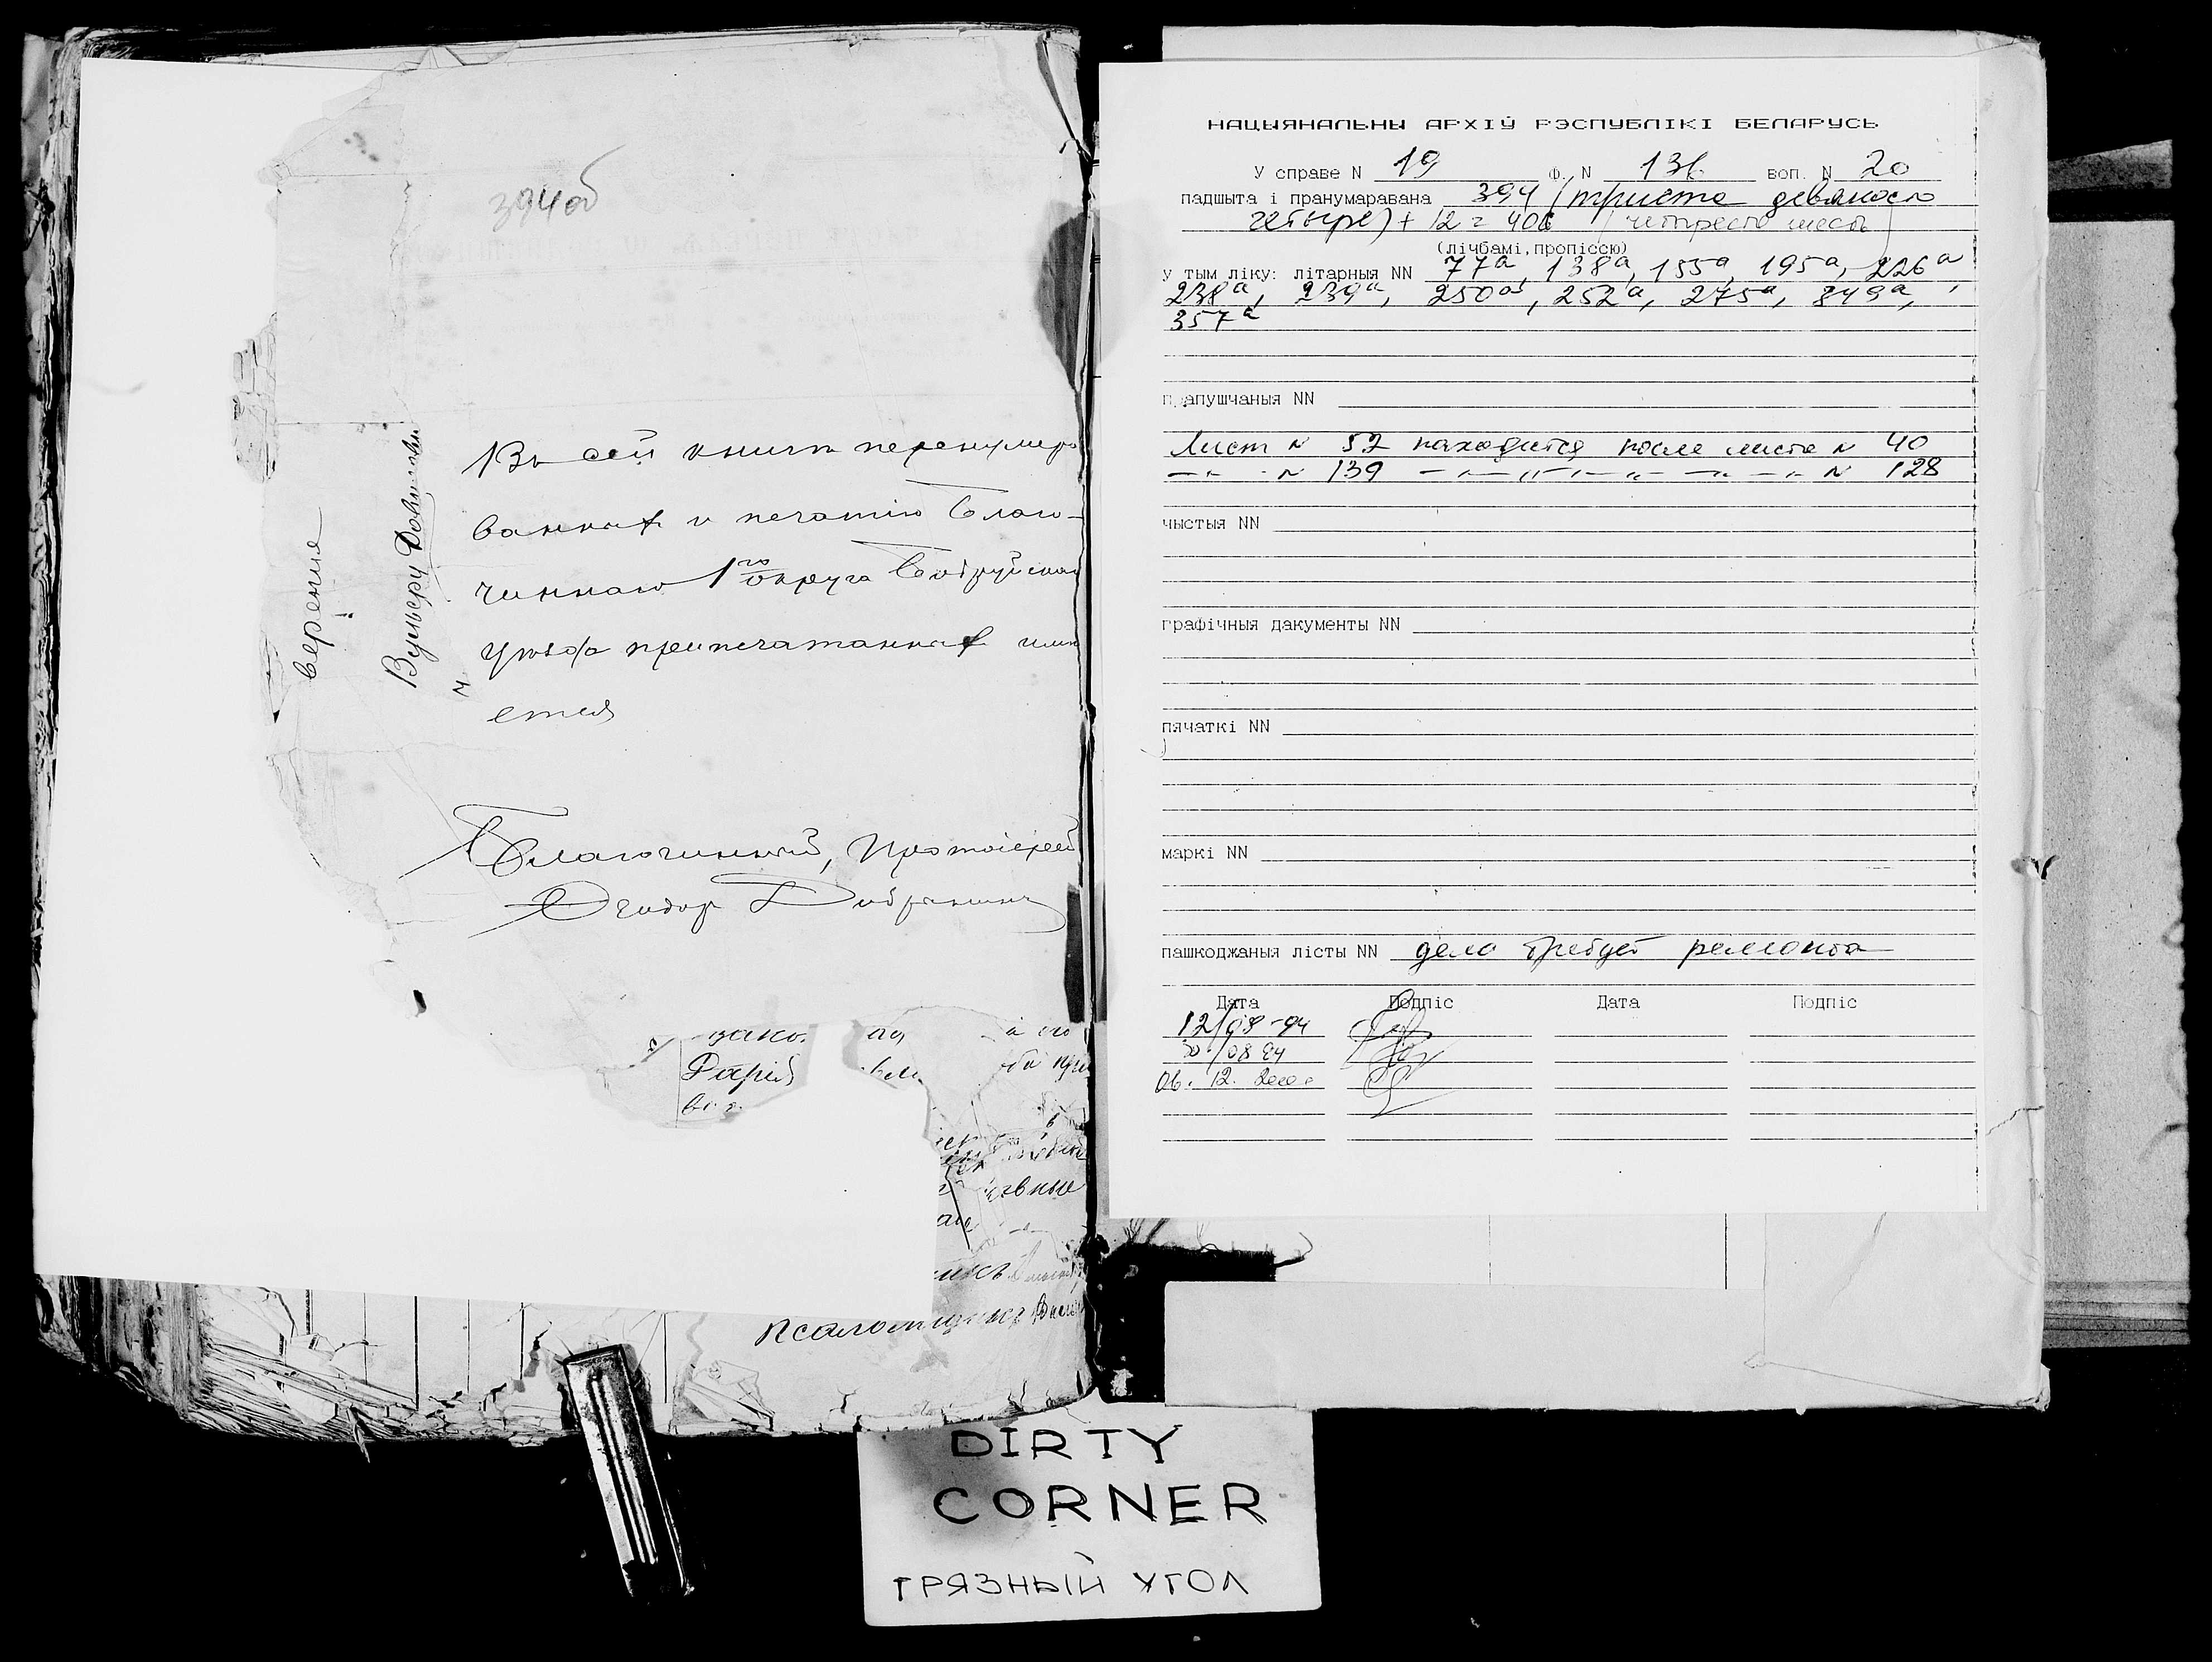 394об
верения
Вульферу Довнисови
Въ сей книге перенумеро
ванныхъ и печатію Благо-
чиннаго 1го округа Бобруйскаго
уѣзда припечатанныхъ имѣ
ется
Благочинный, Протоіерей
Ѳеодор
Псаломщикъ
НАЦЫЯНАЛЬНЫ АРХІЎ РЭСПУБЛІКІ БЕЛАРУСЬ
У справе N 19 Ф. N 136 воп. N 20
падшыта і пранумаравана 394 (триста девяносто
четыре) + 12 = 406 (четыреста шесть)
(лічбамі, пропіссю)
у тым ліку: літарныя NN 77а, 138а, 155а, 195а, 226а
238а, 239а, 250а, 252а, 275а, 349а,
357а
прапушчаныя NN
Лист N 52 находится после листа N 40
-"- N 139 -"- -"- -"- N 128
чыстыя NN
графічныя дакументы NN
пячаткі NN
маркі NN
пашкоджаныя лісты NN дело требует ремонта
Дата Подпіс Дата Подпіс
12/08-94
30/08 94
06. 12. 2000г
DIRTY
CORNER
ГРЯЗНЫЙ УГОЛ